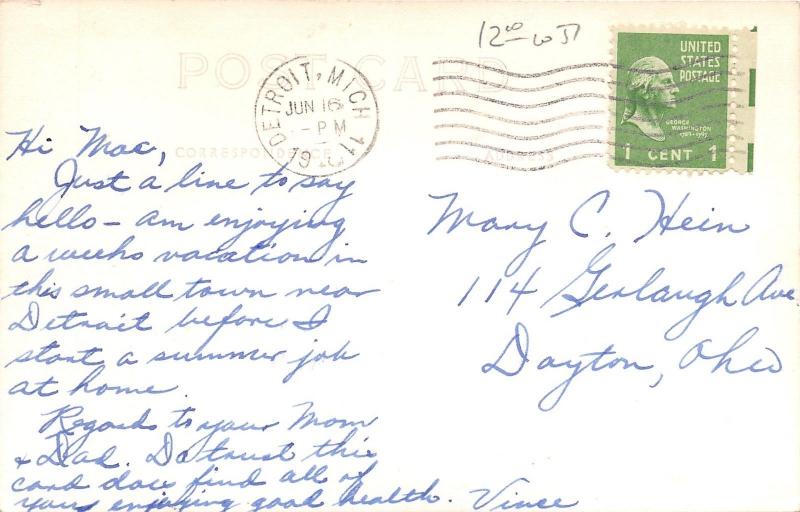 12⁰⁰
POST CARD
UNITED
STATES
POSTAGE
GEORGE
WASHINGTON
1789-1797
1 CENT 1
DETROIT, MICH 11
JUN 16
PM
19
CORRESPONDENCE
ADDRESS
Hi Mac,
Just a line to say
hello – am enjoying
a weeks vacation in
this small town near
Detroit before I
start a summer job
at home.
Regards to your Mom
& Dad. Do trust this
card does find all of
yours enjoying good health. Vince
Mary C. Hein
114 Gerlaugh Ave.
Dayton, Ohio